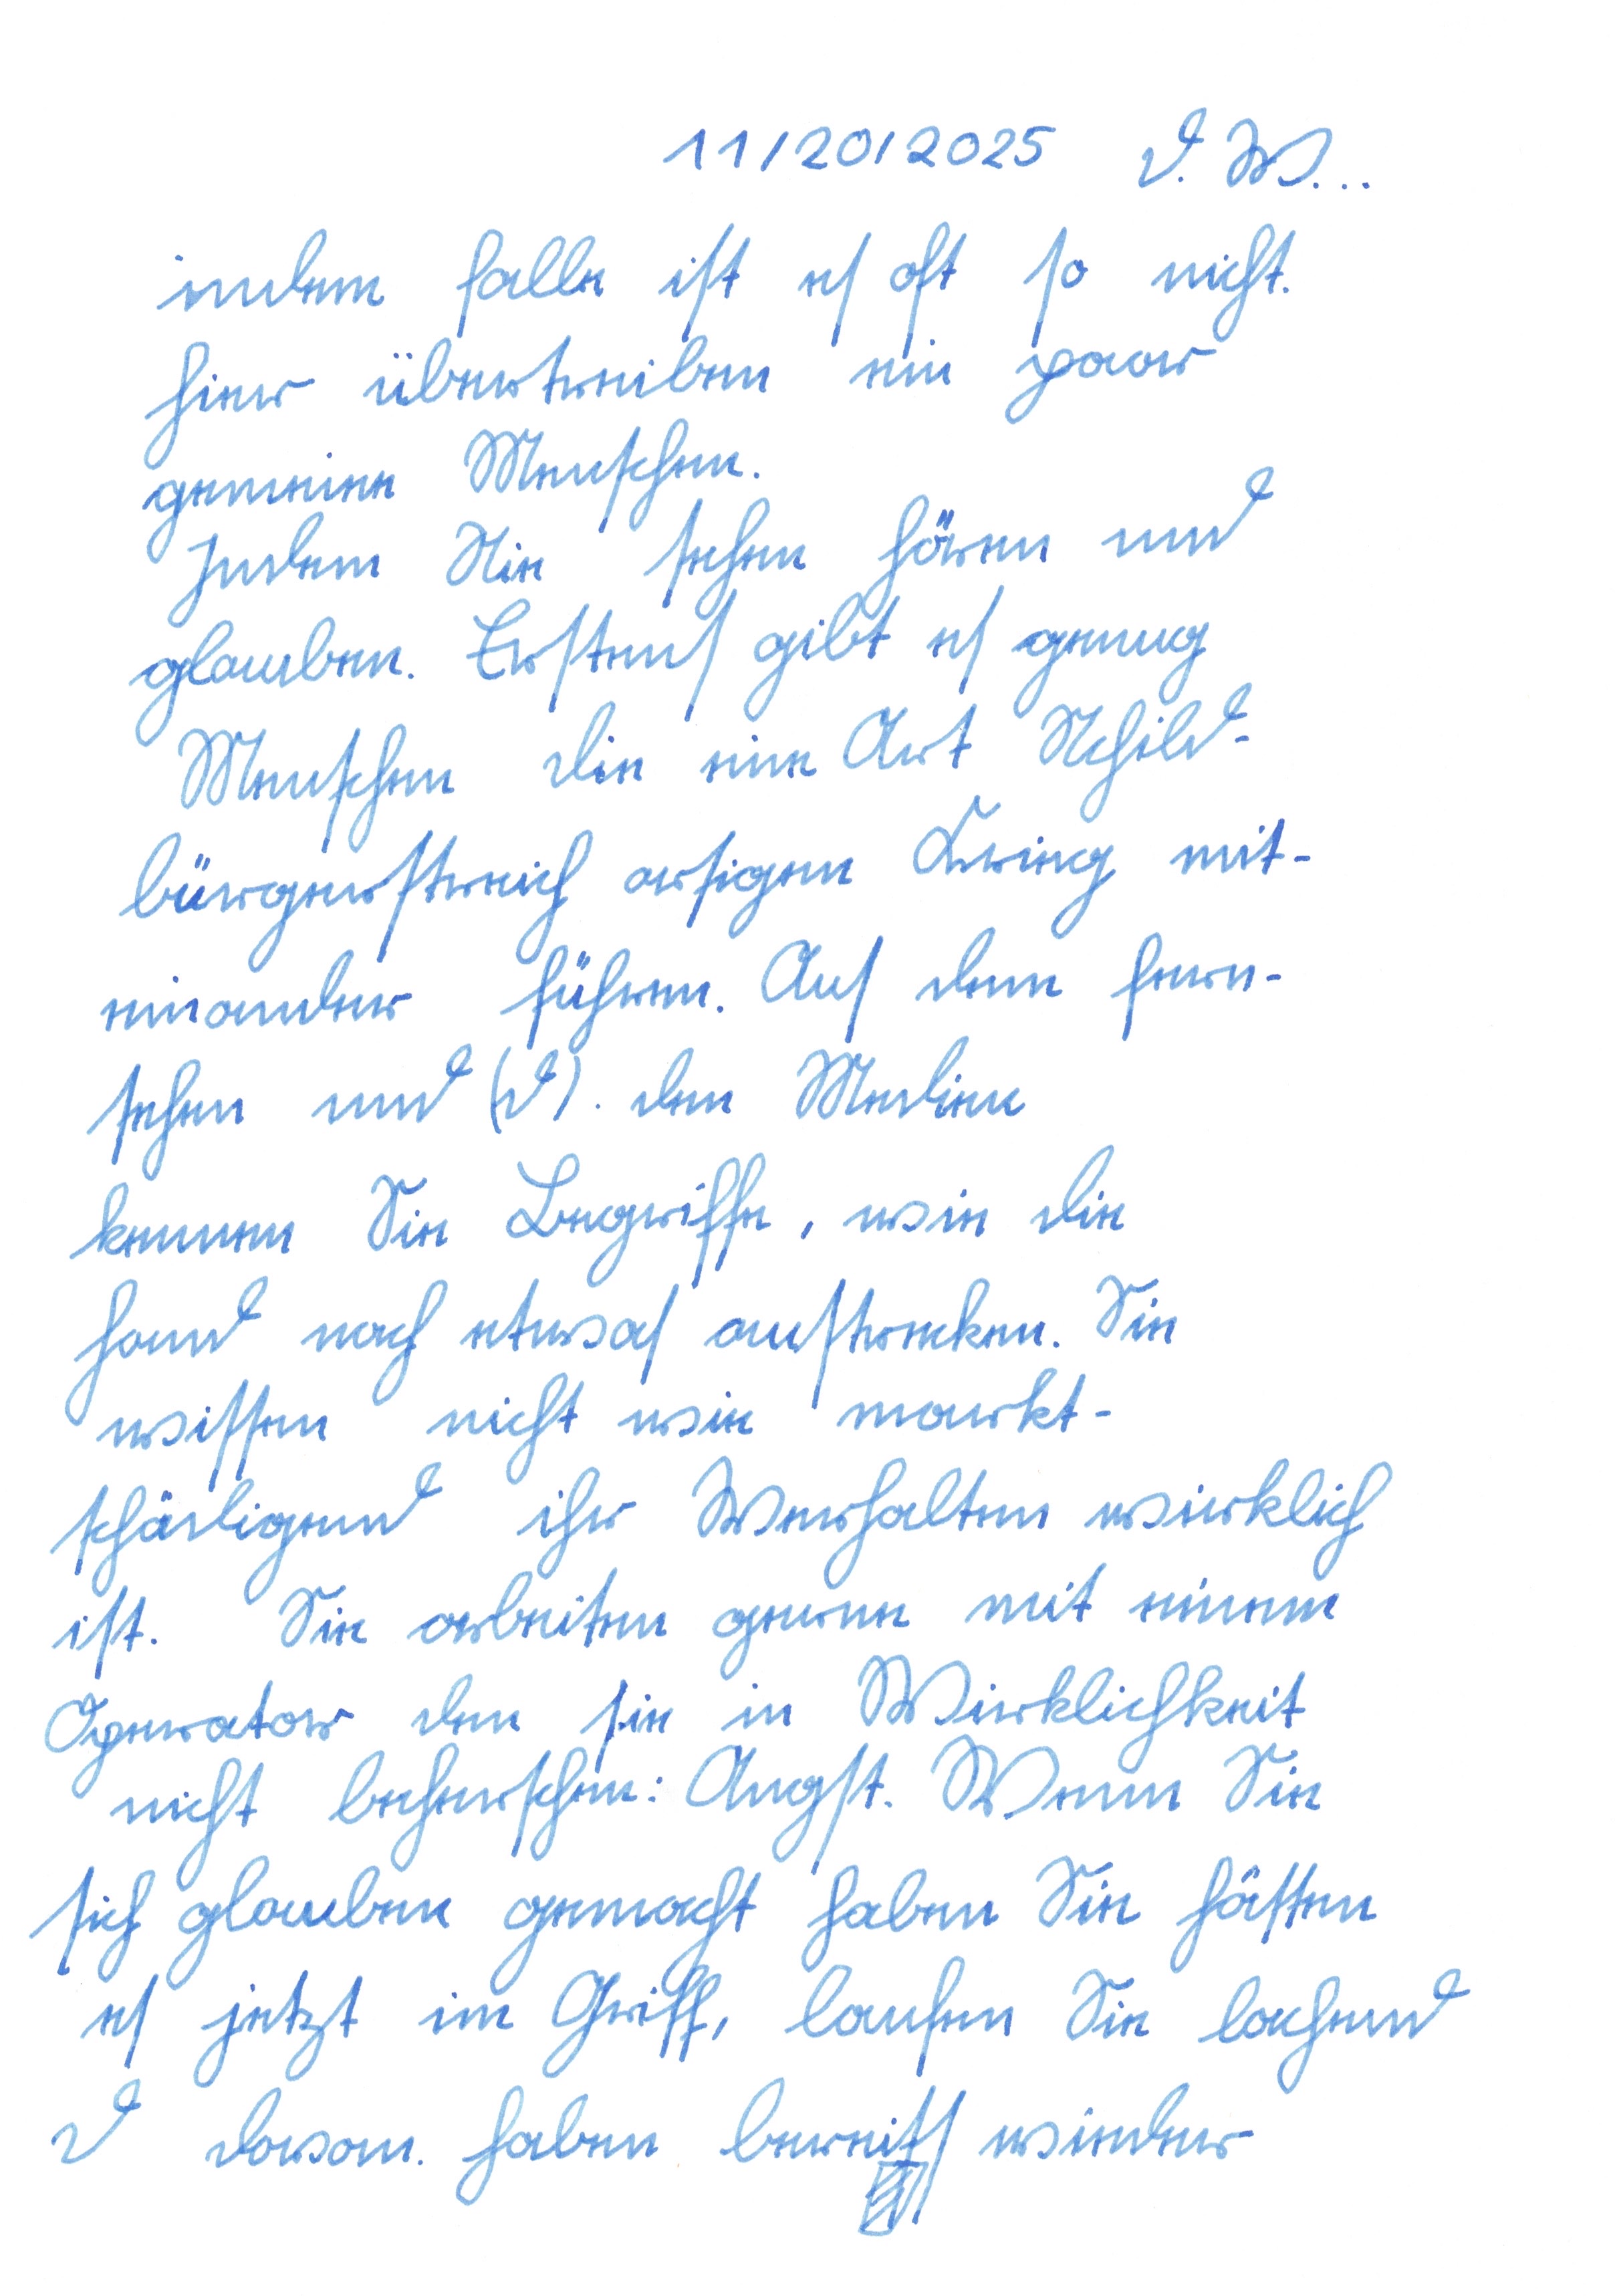 11/20/2025 d. W...
indem falle ist es oft so nicht.
hier übertreiben ein paar
gemeine Menschen.
Indem Sie sehen hören und
glauben. Erstens gibt es genug
Menschen die eine Art Schild-
bürgerstreich artigen Krieg mit-
einander führen. Aus dem fern-
sehen und (d). den Medien
kennen Sie Begriffe, wie die
hand nach etwas austrecken. Sie
wissen nicht wie markt-
schädigend ihr Verhalten wirklich
ist. Sie arbeiten gerne mit einem
Operator den sie in Wirklichkeit
nicht beherschen: Angst. Wenn Sie
sich glauben gemacht haben Sie hätten
es jetzt im Griff, laufen Sie lachend
d davon. haben bereits wieder